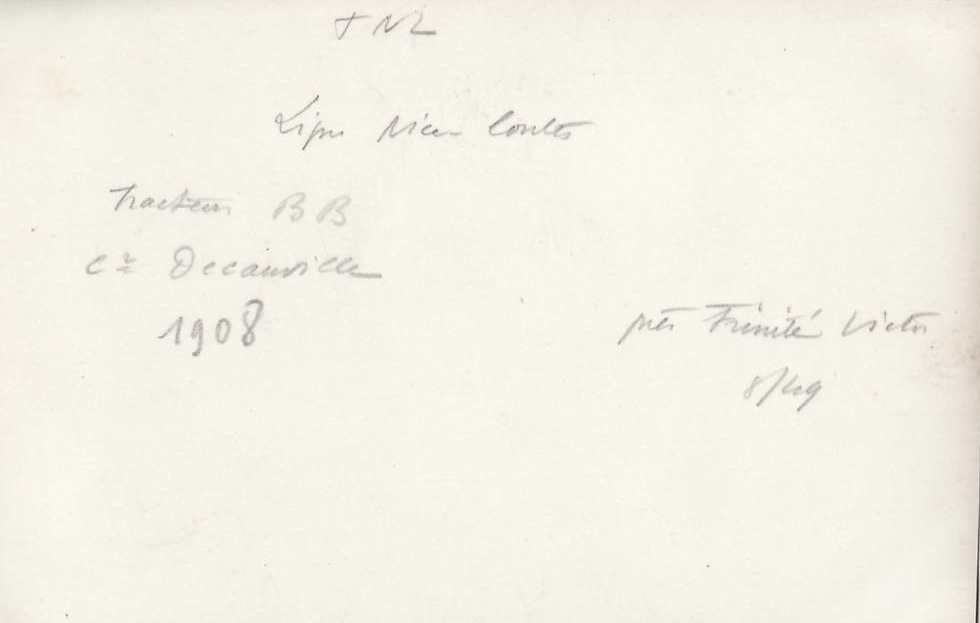 TNL
Ligne Nice Contes
Tracteur BB
Cie Decauville
1908
près Trinité Victor
8/49